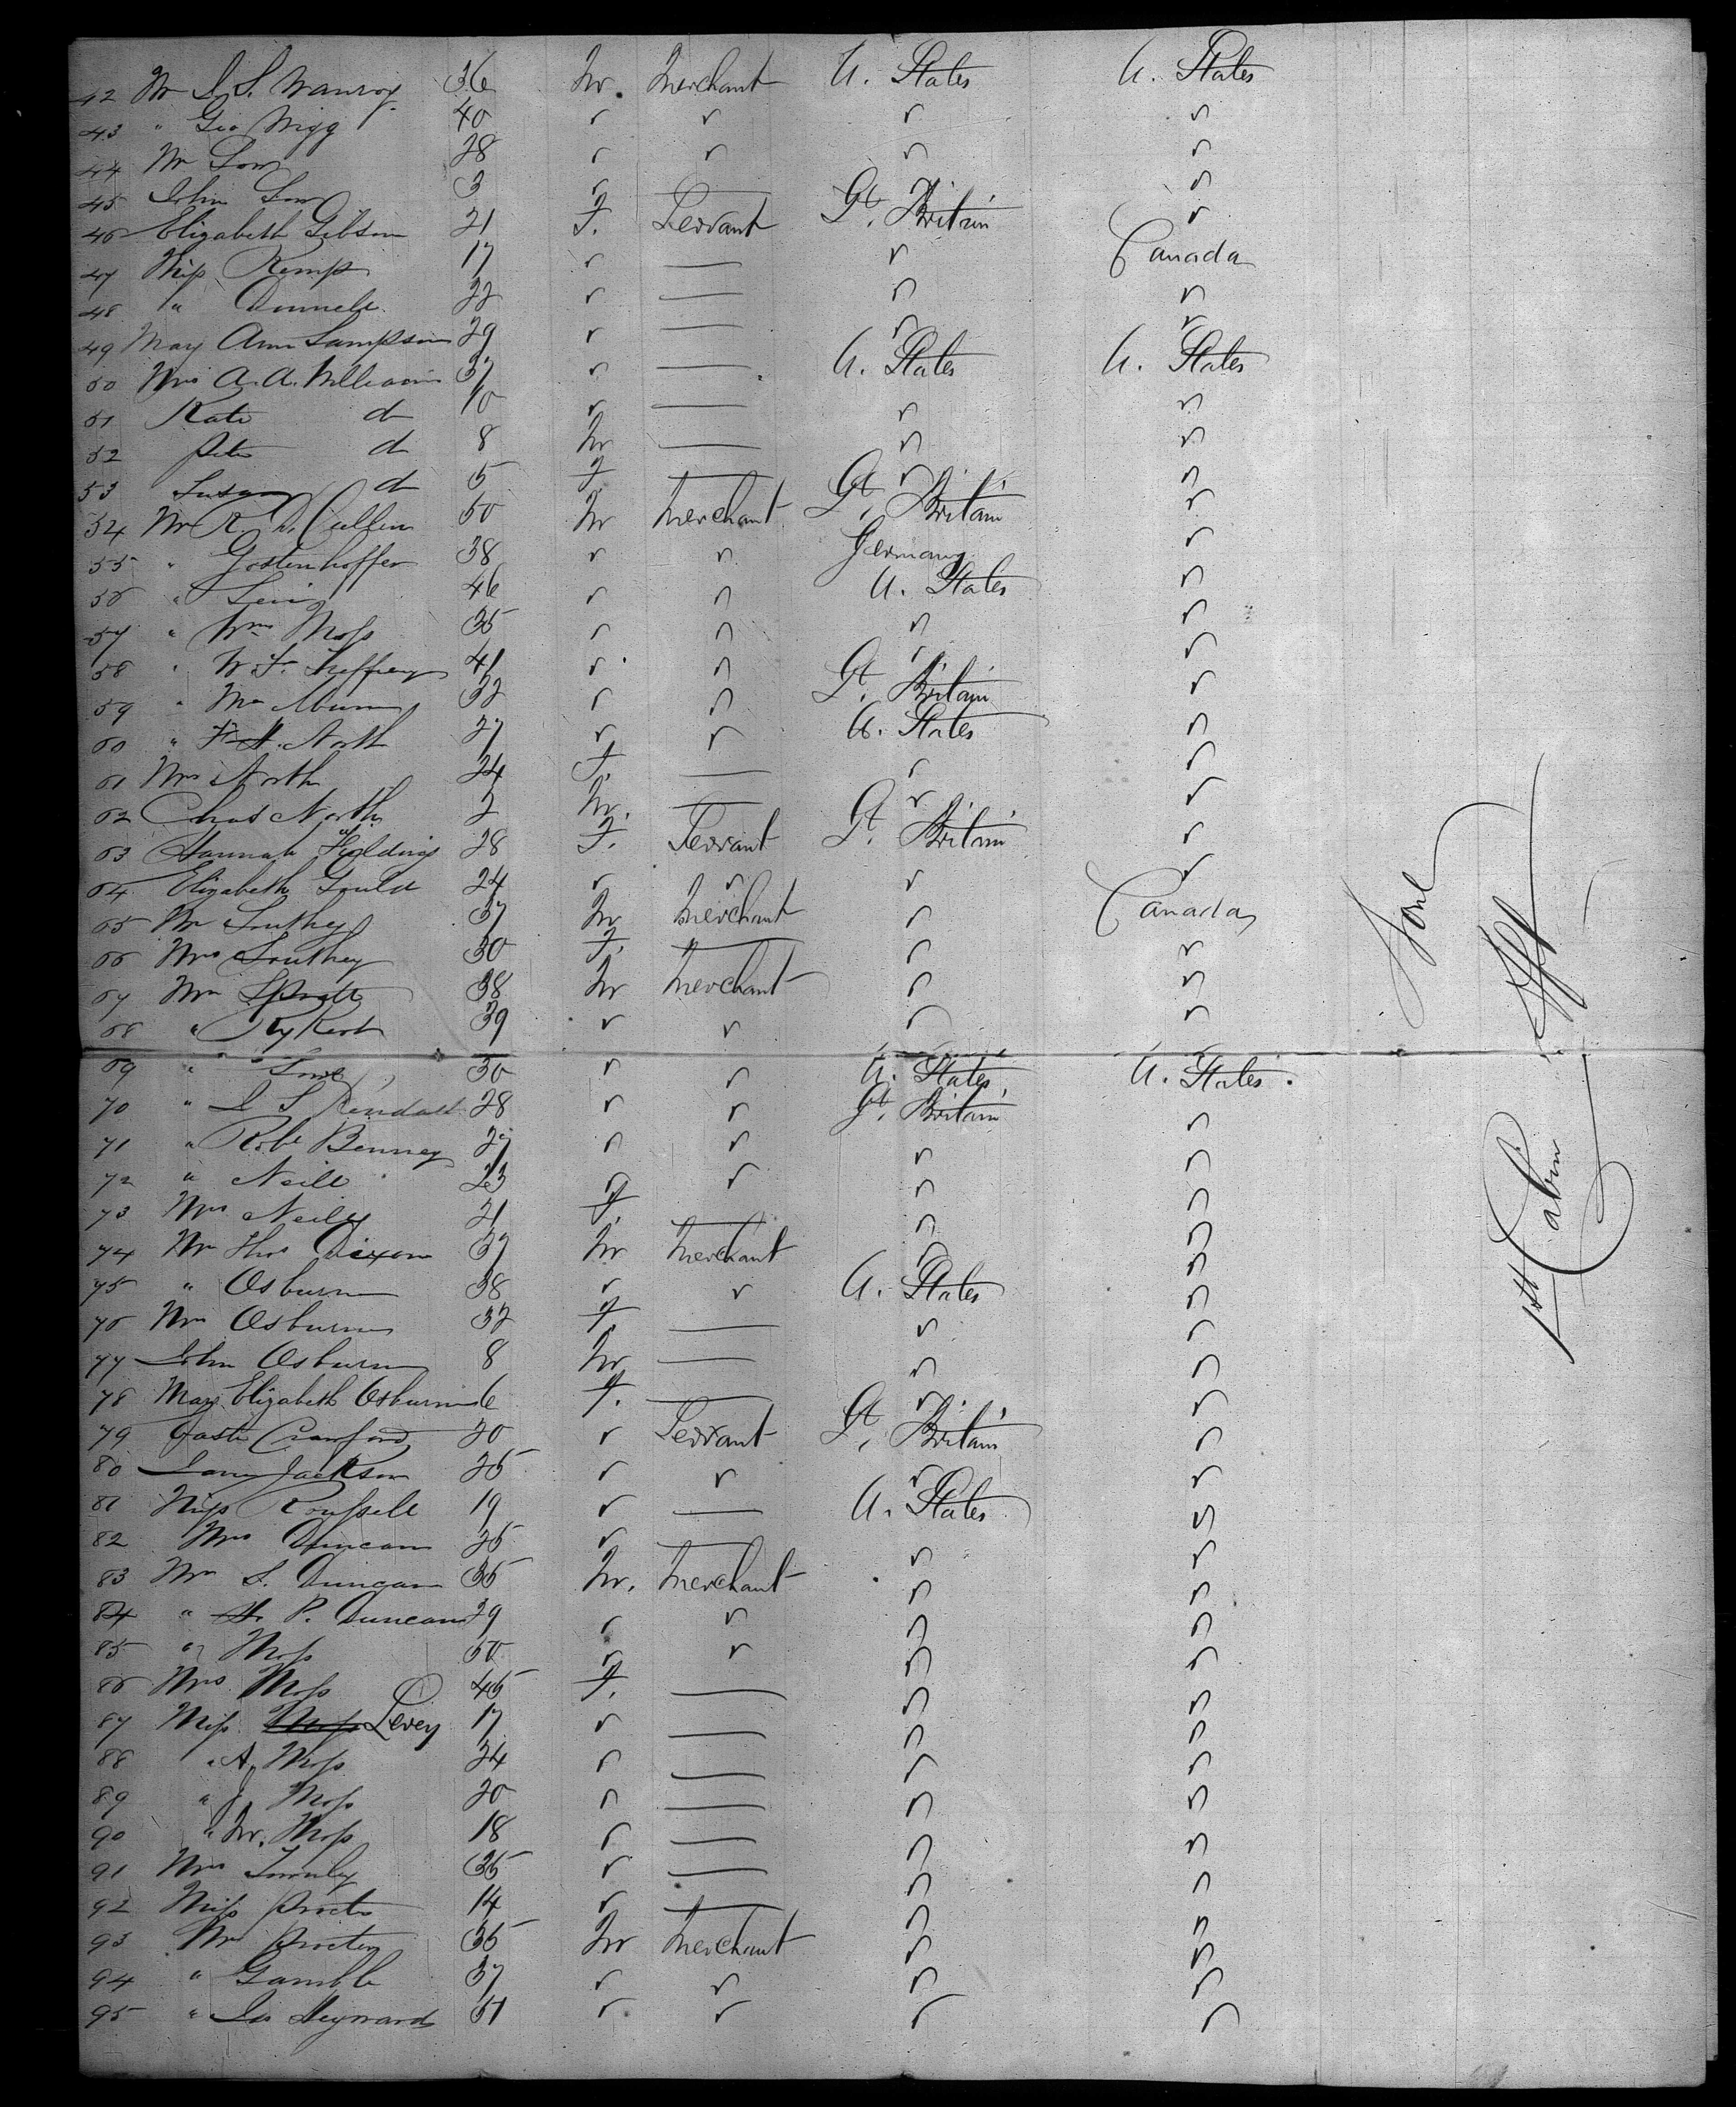 42 Mr 36 M. Merchant U. States U. States
43 " Geo Nigg 40 " " " "
44 Mr Low 28 " " " "
45 John Low 3 " — " "
46 Elizabeth Gibson 21 F. Servant Gt. Britain "
47 Miss Kemp 17 " — " Canada
48 " 22 " — " "
49 Mary Ann Sampson 29 " — " "
50 Mrs A. A. 37 " — U. States U. States
51 Kate do 10 " — " "
52 Peter do 8 M — " "
53 Susan do 5 F — " "
54 Mr R. Cullen 50 M Merchant Gt. Britain "
55 " Gostenhoffer 38 " " Germany "
56 " 46 " " U. States "
57 " Wm Moss 35 " " " "
58 " W. F. 41 " " " "
59 " 32 " " Gt. Britain "
60 " F. H. North 27 " " U. States "
61 Mrs North 24 F. — " "
62 Chas North 2 M. — " "
63 Hannah 28 F. Servant Gt. Britain "
64 Elizabeth Gould 24 " " " "
65 Mr Southey 37 M Merchant " Canada
66 Mrs Southey 30 F. — " "
67 Mr Spratt 38 M Merchant " "
68 " Rykert 39 " " " "
69 " 30 " " U. States U. States
70 " Kendall 28 " " Gt. Britain "
71 " Robt Benney 27 " " " "
72 " Neill 23 " " " "
73 Mrs Neill 21 F. — " "
74 Mr Thos Dixon 37 M Merchant " "
75 " Osburn 38 " " U. States "
76 Mrs Osburn 32 F. — " "
77 John Osburn 8 M. — " "
78 Mary Elizabeth Osburn 6 F. — " "
79 Crawford 20 " Servant Gt. Britain "
80 Jackson 25 " " " "
81 Miss Roussell 19 " — U. States "
82 Mrs Duncan 25 " — " "
83 Mr S. Duncan 35 M. Merchant " "
84 " P. Duncan 29 " " " "
85 " Moss 50 " " " "
86 Mrs Moss 45 F. — " "
87 Miss Moss Levey 17 " — " "
88 " A. Moss 24 " — " "
89 " J Moss 20 " — " "
90 " M. Moss 18 " — " "
91 Mrs Townly 35 " — " "
92 Miss Procter 14 " — " "
93 Mr Procter 35 M Merchant " "
94 " Gamble 37 " " " "
95 " Heyward 51 " " " "
1st Cabin